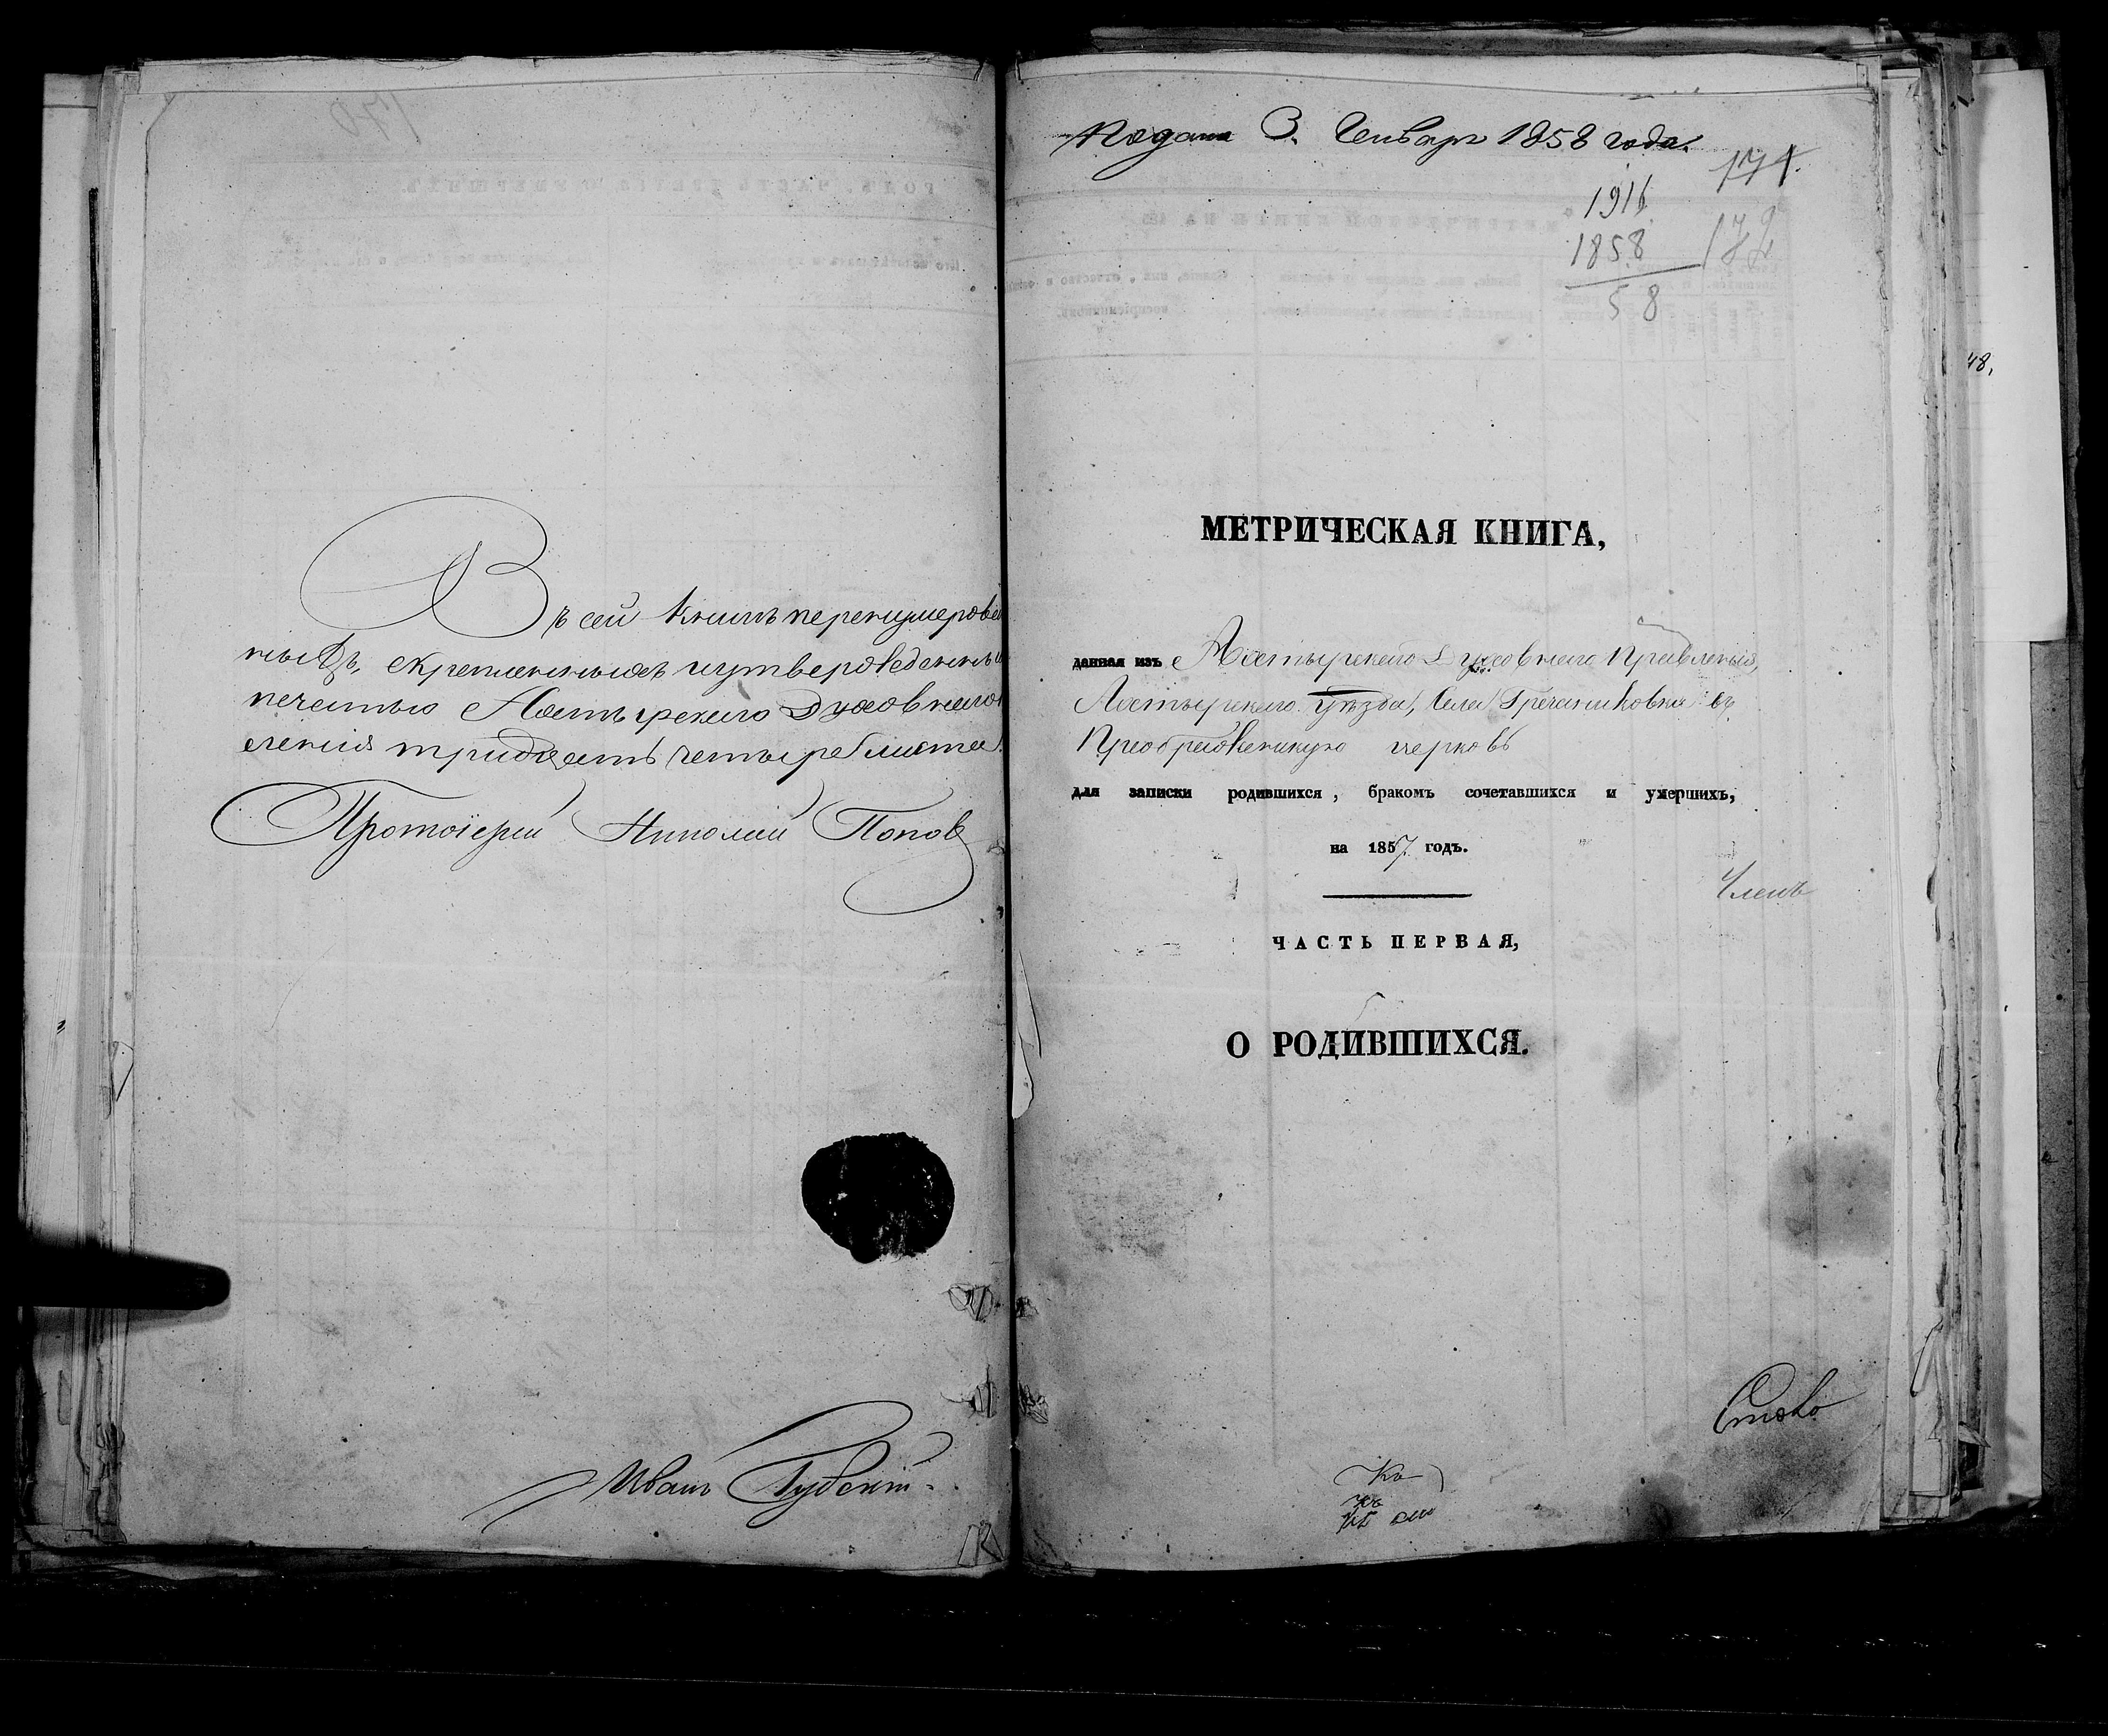 Въ сей Книгѣ перенумерован
ныхъ, скрепленныхъ и утвержденны
печатью Ахтырскаго Духовнаго
вленія тридцать четыре листа.
Протоіерей Николай Попов
Иванъ
Подана 3. Генваря 1858 года.
171.
1916
1858
58
172
48,
МЕТРИЧЕСКАЯ КНИГА,
данная изъ Ахтырскаго Духовнаго Правленія,
Ахтырскаго уѣзда, Села Гречаниковки въ
Преображенскую церковь
для записки родившихся, бракомъ сочетавшихся и умершихъ,
на 1857 годъ.
Членъ
ЧАСТЬ ПЕРВАЯ,
О РОДИВШИХСЯ.